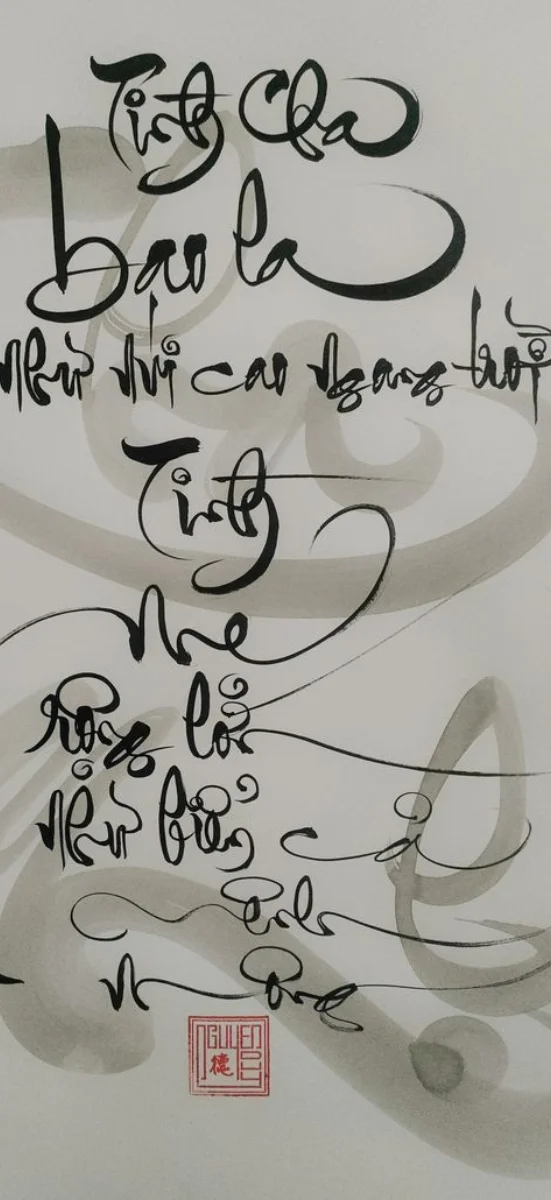 Tình Cha
bao la
như núi cao ngang trời
Tình
Mẹ
rộng lớn
như biển cả
mênh
mông
NGUYEN
德